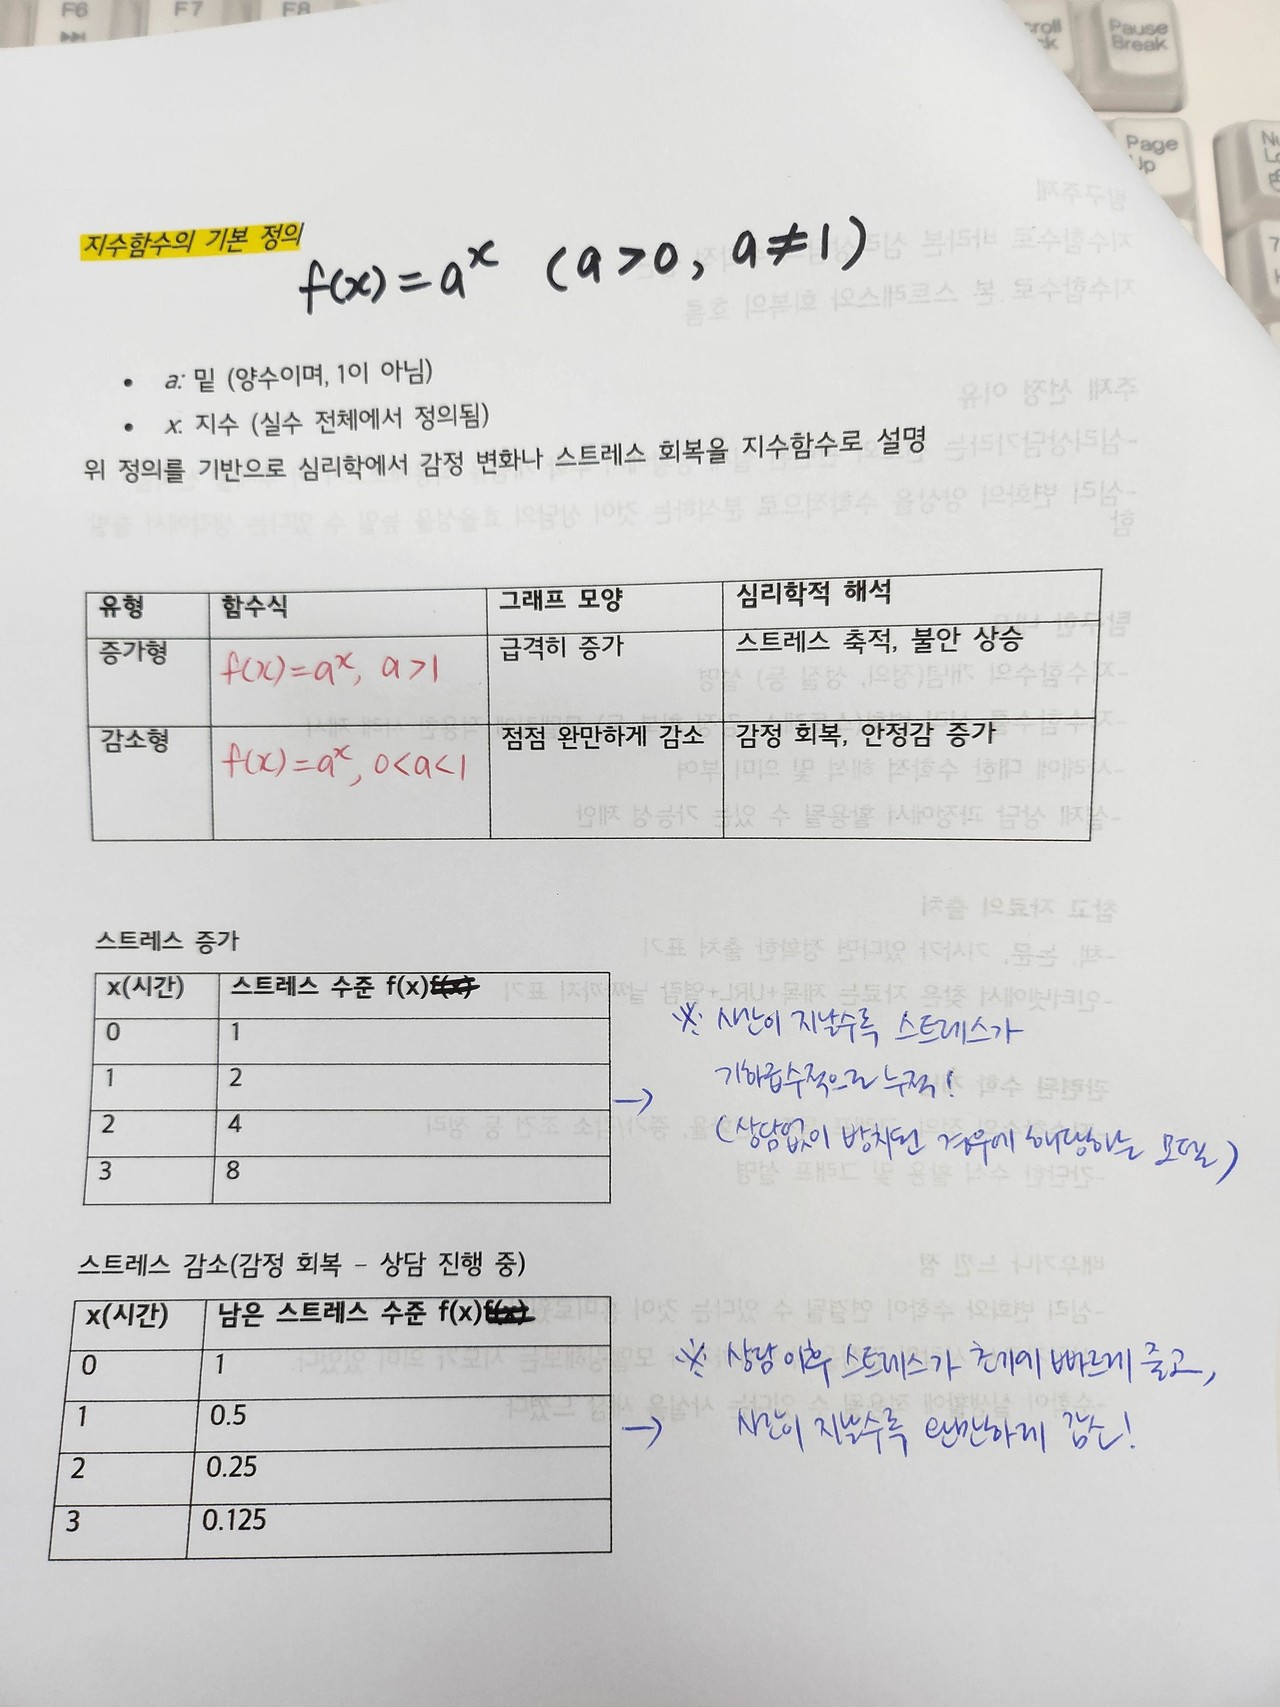 F6
F7
F8
Pause
Break
Page
Up
지수함수의 기본 정의
f(x)=aˣ (a>0, a≠1)
• a: 밑 (양수이며, 1이 아님)
• x: 지수 (실수 전체에서 정의됨)
위 정의를 기반으로 심리학에서 감정 변화나 스트레스 회복을 지수함수로 설명
유형 함수식 그래프 모양 심리학적 해석
증가형 f(x)=aˣ, a>1 급격히 증가 스트레스 축적, 불안 상승
감소형 f(x)=aˣ, 0<a<1 점점 완만하게 감소 감정 회복, 안정감 증가
스트레스 증가
x(시간) 스트레스 수준 f(x)
0 1
1 2
2 4
3 8
→ ※ 시간이 지날수록 스트레스가
기하급수적으로 누적!
(상담없이 방치된 경우에 해당하는 모델)
스트레스 감소(감정 회복 – 상담 진행 중)
x(시간) 남은 스트레스 수준 f(x)
0 1
1 0.5
2 0.25
3 0.125
→ ※ 상담 이후 스트레스가 초기에 빠르게 줄고,
시간이 지날수록 완만하게 감소!